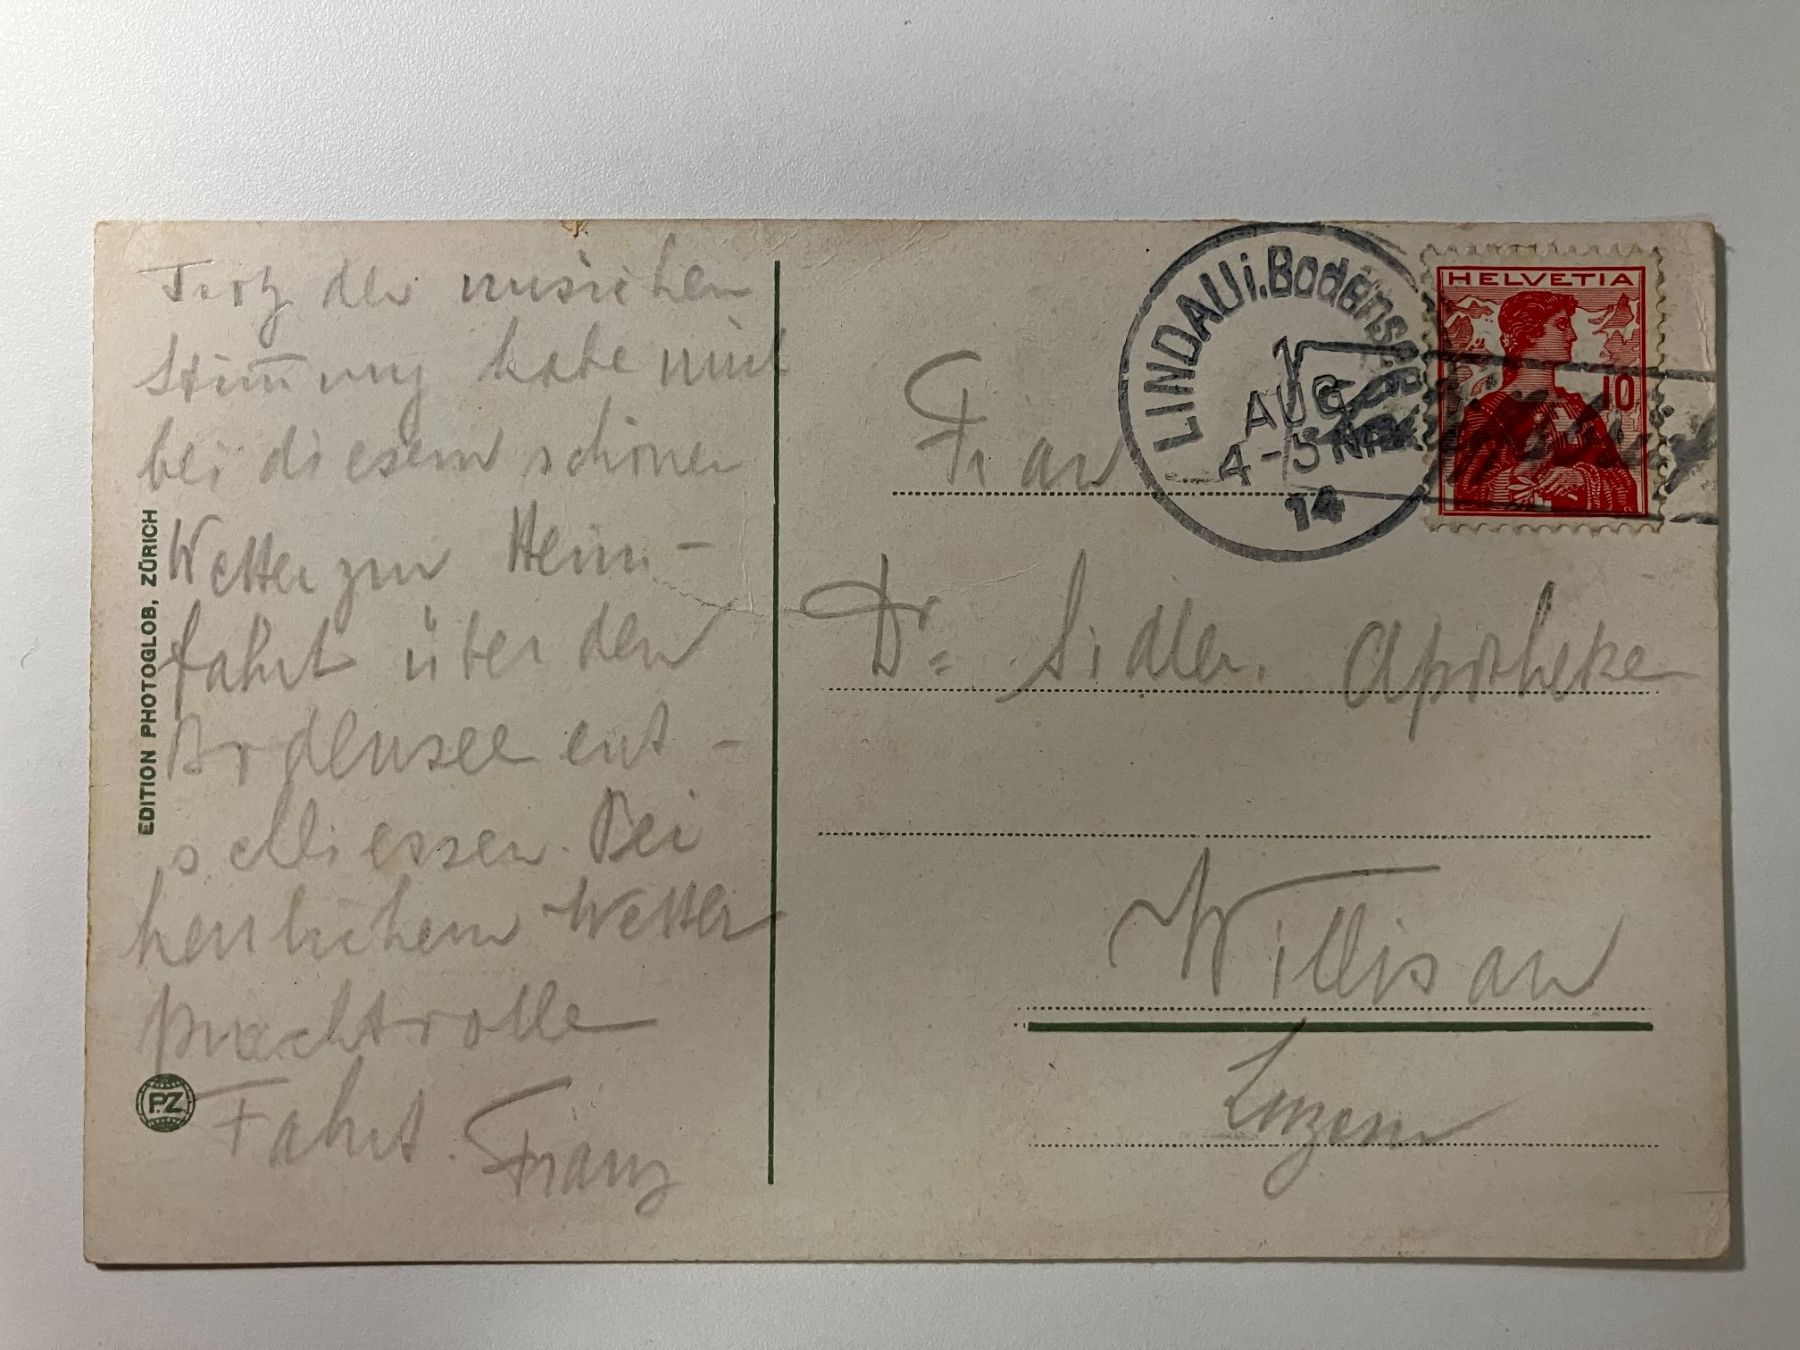 Trotz der unsichern
Stimmung habe mich
bei diesem schönen
Wetter zur Heim-
fahrt über den
Bodensee ent-
schliessen. Bei
herrlichem Wetter
prachtvolle
Fahrt. Franz
EDITION PHOTOGLOB, ZÜRICH
PZ
LINDAU i. Bodensee
1
AUG
4-5 Nm
14
HELVETIA
10
Frau
Dr. Sidler. Apotheke
Willisau
Luzern